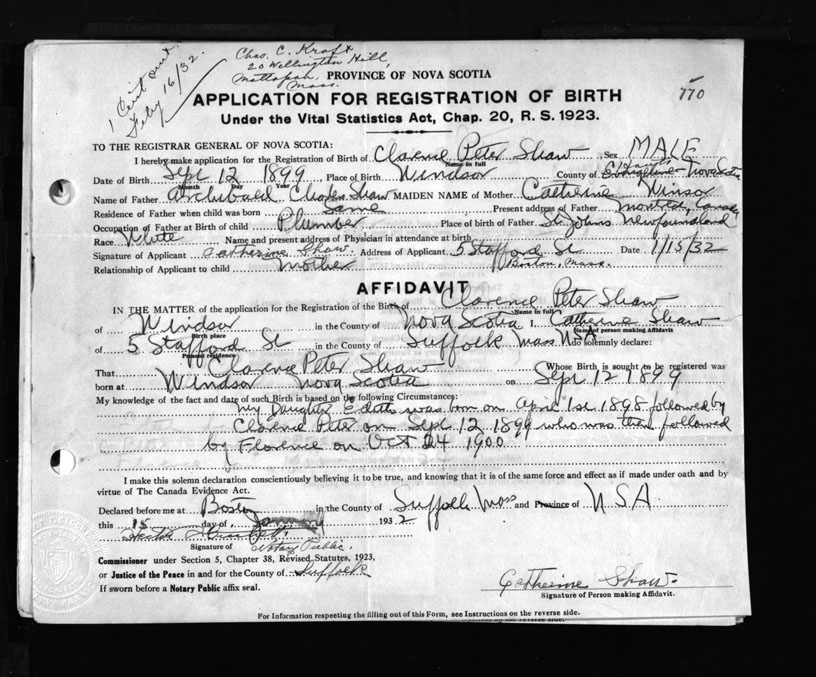 1 Cert out.
Feby 16/32.
Chas. C. Kraft
20 Wellington Hill,
Mattapan, Mass.
PROVINCE OF NOVA SCOTIA
770
APPLICATION FOR REGISTRATION OF BIRTH
Under the Vital Statistics Act, Chap. 20, R. S. 1923.
TO THE REGISTRAR GENERAL OF NOVA SCOTIA:
I hereby make application for the Registration of Birth of Clarence Peter Shaw Sex MALE
Name in full
Date of Birth Sept 12 1899 Place of Birth Windsor County of Nova Scotia
Month Day Year
Name of Father Archibald Charles Shaw MAIDEN NAME of Mother Catherine Winsor
Residence of Father when child was born Same Present address of Father Montreal, Canada
Occupation of Father at Birth of child Plumber Place of birth of Father St. Johns Newfoundland
Race White Name and present address of Physician in attendance at birth
Signature of Applicant Catherine Shaw. Address of Applicant 5 Stafford St Date 1/15/32
Relationship of Applicant to child Mother Boston, Mass.
AFFIDAVIT
IN THE MATTER of the application for the Registration of the Birth of Clarence Peter Shaw
Name in full
of Windsor in the County of Nova Scotia I, Catherine Shaw
Birth place Name of person making Affidavit
of 5 Stafford St in the County of Suffolk Mass USA do solemnly declare:
Present residence
That Clarence Peter Shaw Whose Birth is sought to be registered was
born at Windsor Nova Scotia on Sept 12 1899
My knowledge of the fact and date of such Birth is based on the following Circumstances:
My Daughter Edith was born on April 1st 1898 followed by
Clarence Peter on Sept 12 1899 who was then followed
by Florence on Oct 24 1900
I make this solemn declaration conscientiously believing it to be true, and knowing it is of the same force and effect as if made under oath and by
virtue of The Canada Evidence Act.
Declared before me at Boston in the County of Suffolk Mass and Province of U S A
this 15 day of January 1932
Signature of Notary Public.
Commissioner under Section 5, Chapter 38, Revised Statutes, 1923,
or Justice of the Peace in and for the County of Suffolk
If sworn before a Notary Public affix seal.
Catherine Shaw.
Signature of Person making Affidavit.
For Information respecting the filling out of this Form, see Instructions on the reverse side.